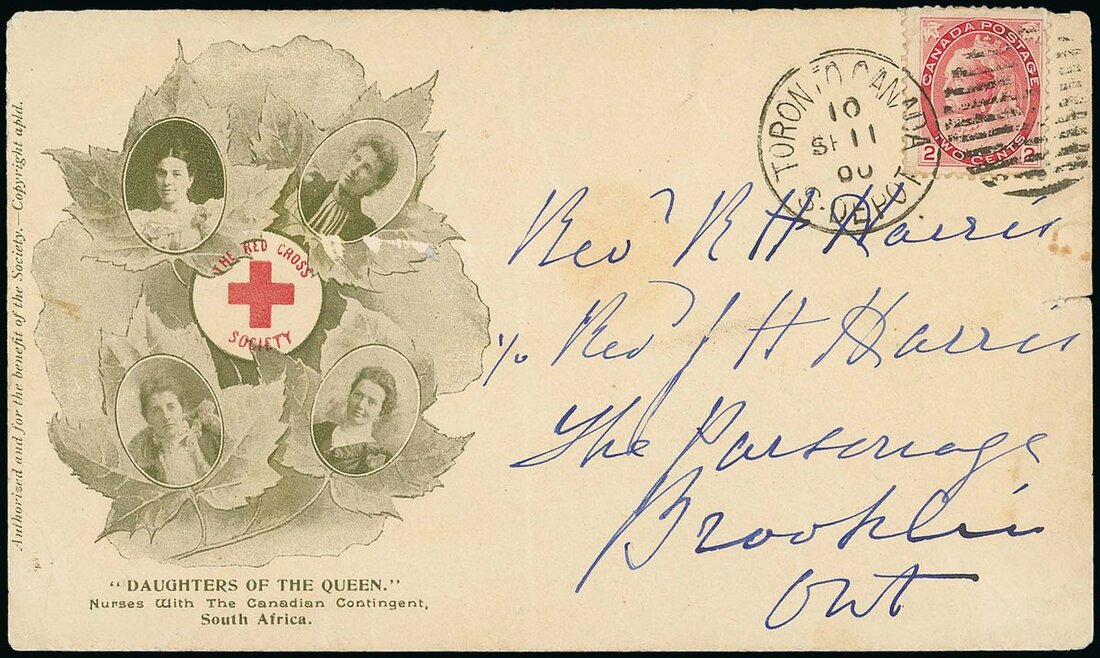 Authorized and for the benefit of the Society.—Copyright apld.
THE RED CROSS
SOCIETY
"DAUGHTERS OF THE QUEEN."
Nurses With The Canadian Contingent,
South Africa.
TORONTO CANADA
10
SP 11
00
S-DEPOT
CANADA POSTAGE
2 TWO CENTS 2
Rev R H Harris
c/o Rev J H Harris
The Parsonage
Brooklin
Ont